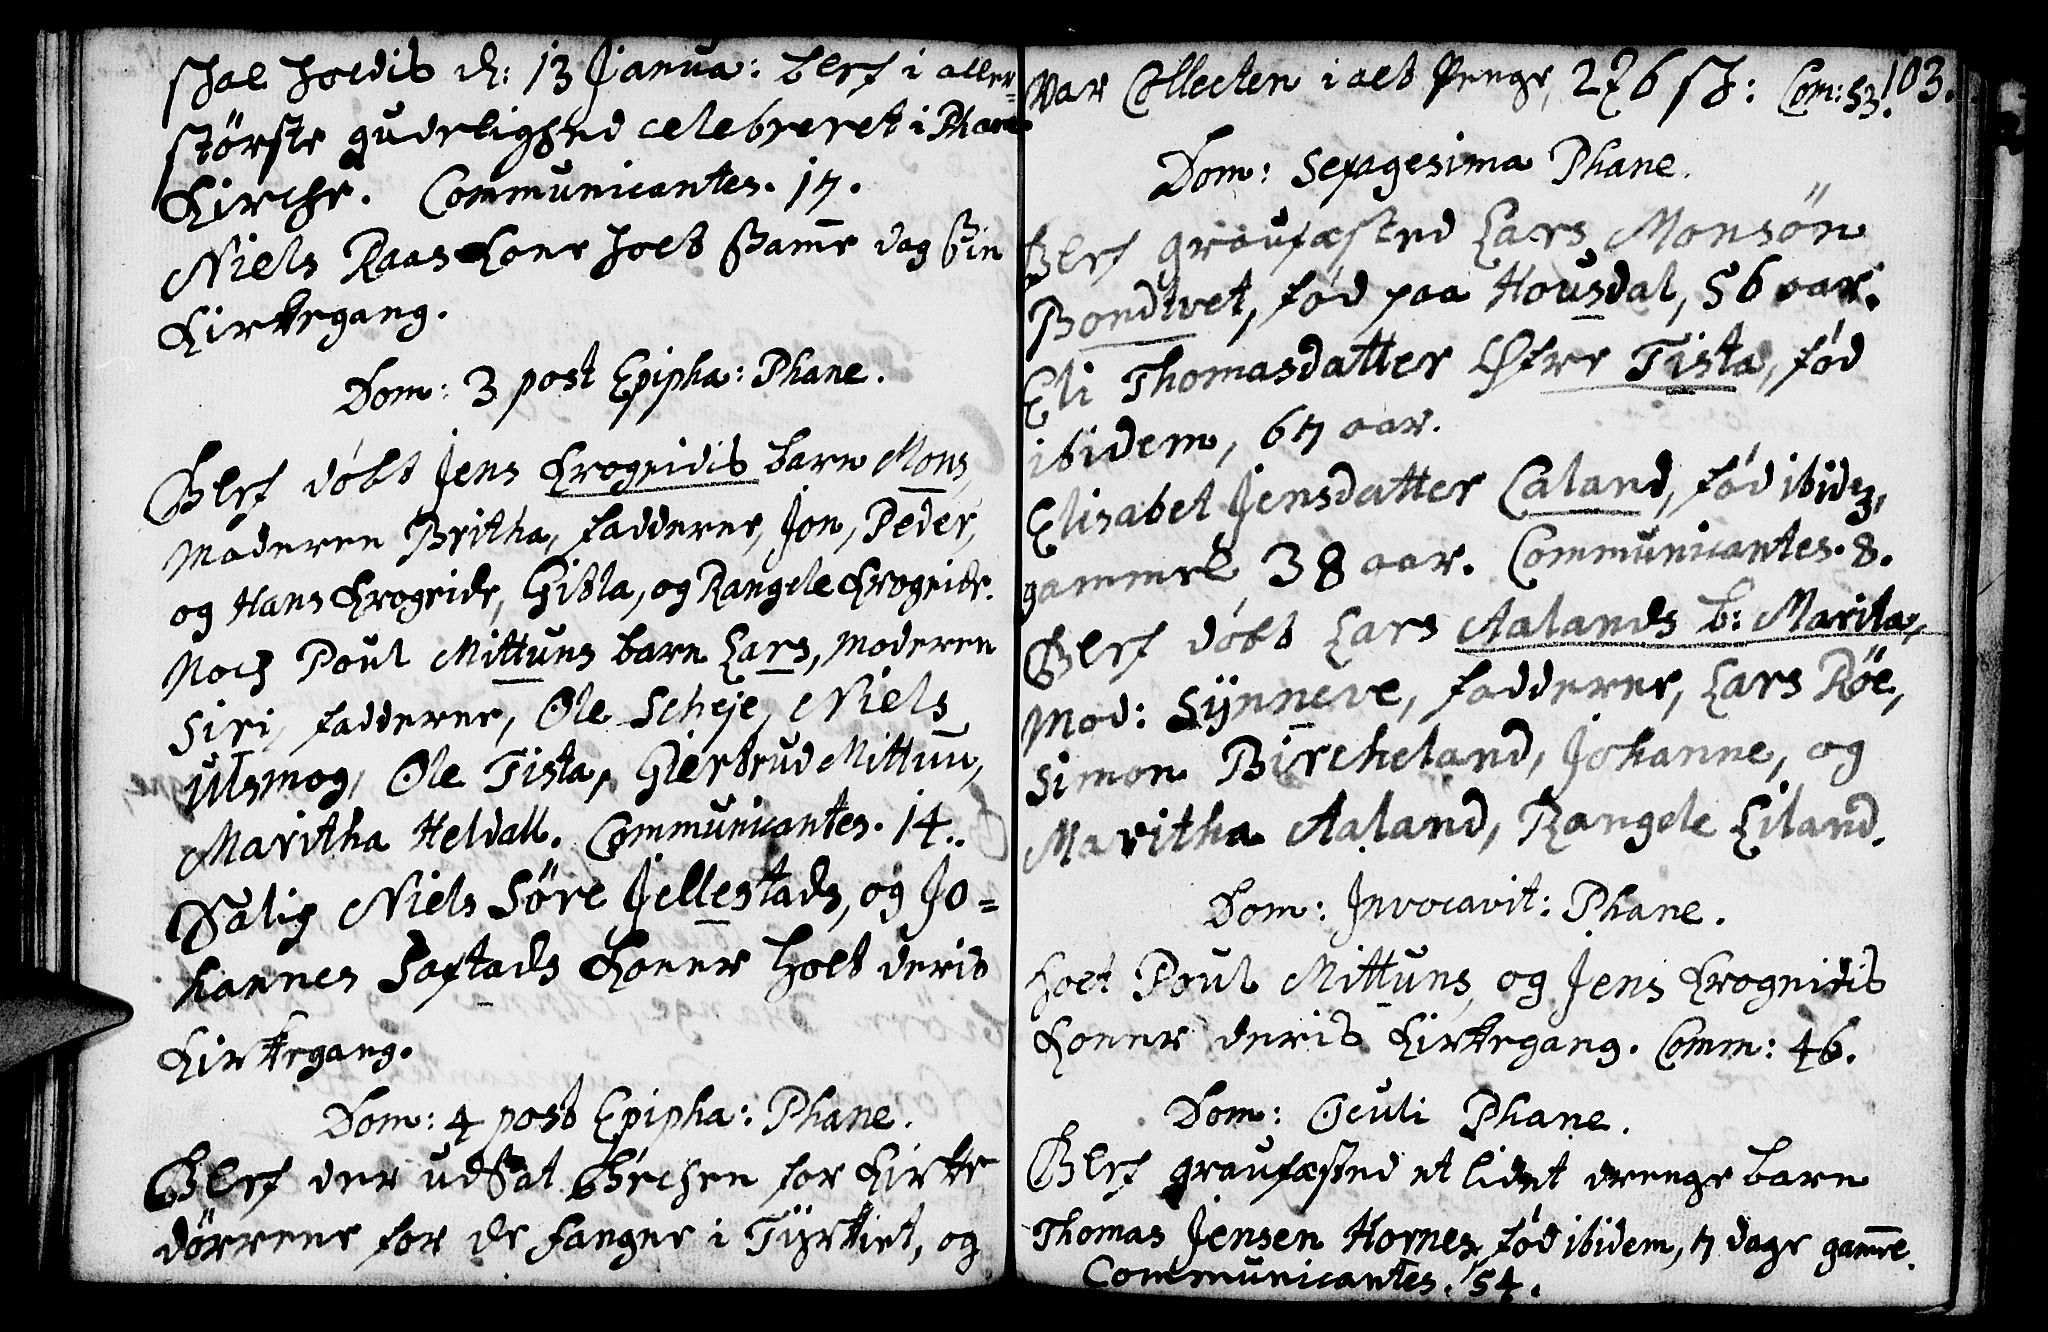 skal holdis d: 13 Janua: blef i aller-
største gudelighed celebreret i Phane
Kirche. Communicantes. 17.
Niels Raas Kone holt samme dag sin
Kirkegang.
Dom: 3 post Epipha: Phane.
Blef døbt Jens Krogeidis barn Mons,
Moderen Britha, fadderne, Jon, Peder,
og Hans Krogeide, Gisla, og Rangele Krogeide.
Noch Poul Mittuns barn Lars, Moderen
Siri, fadderne, Ole Scheje, Niels
Ulsmog, Ole Tista, Giertrud Mittun,
Maritha Heldall. Communicantes. 14.
Salig Niels Søre Jellestads, og Jo-
hannes Saxtads Koner holt deris
Kirkegang.
Dom: 4 post Epipha: Phane.
Blef der udsat Bechen for Kirke
dørrene for de fangne i Tyrkiet, og
var Collecten i alt Penge, 276 sk: Com: 53. 103.
Dom: Sexagesima Phane.
Blef graufæsted Lars Monsøn
Bondtvet, fød paa Housdal, 56 aar.
Eli Thomasdatter Øfre Tista, fød
ibidem, 67 aar.
Elisabet Jensdatter Caland, fød ibidem,
gammel 38 aar. Communicantes. 8.
Blef døbt Lars Aalands b: Marita,
Mod: Synneve, fadderne, Lars Røe,
Simon Bircheland, Johanne, og
Maritha Aaland, Rangele Liland.
Dom: Invocavit: Phane.
holt Poul Mittuns, og Jens Krogeidis
Koner deris Kirkegang. Comm: 46.
Dom: Oculi Phane.
Blef graufæsted et lidet drenge barn
Thomas Jensen Hornes, fød ibidem, 7 dage gamle.
Communicantes. 54.